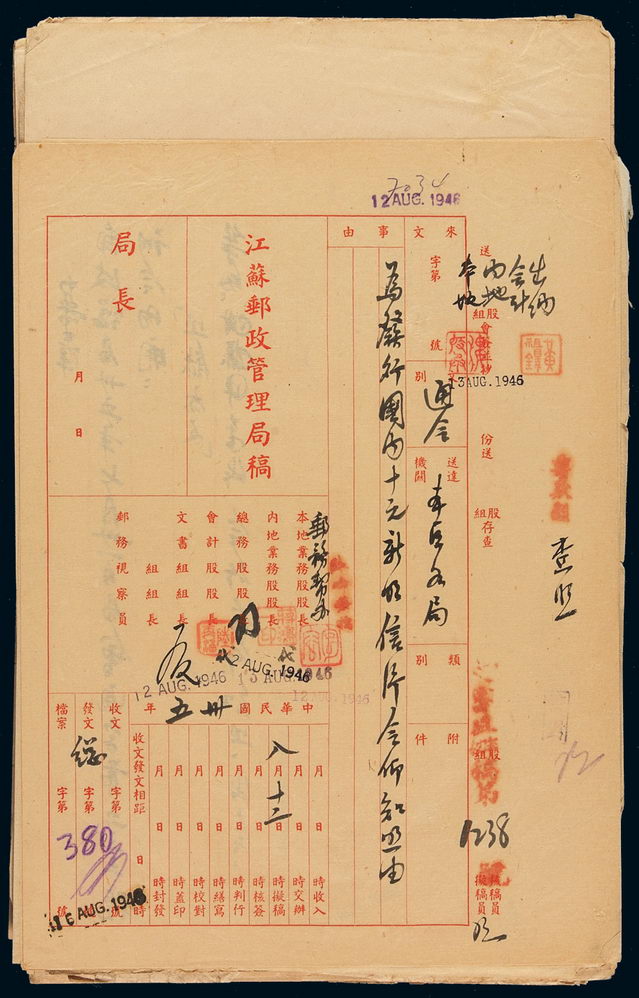 7034
12 AUG. 1946
送
出納
会計
內地
本地
組股會
份送
查照
組股存查
組股
1238
擬稿員
核稿員
來文
字第
號
13 AUG. 1946
別
通令
送達機關
本區各局
類別
附件
事由
為發行國內十元新明信片令仰知照由
江蘇郵政管理局稿
局長
月
日
郵務幫办
本地業務股股長
內地業務股股長
總務股股長
會計股股長
文書組組長
郵務視察員
代
12 AUG. 1946
12 AUG. 1946
13 AUG. 1946
12 1946
中華民國卅五年
月 日 時收入
月 日 時交辦
八月十二日 時擬稿
月 日 時核簽
月 日 時判行
月 日 時繕寫
月 日 時校對
月 日 時蓋印
月 日 時封發
收文發文相距 日 時
收文 字第 號
發文 總 字第 380 號
檔案 字第 號
16 AUG. 1946